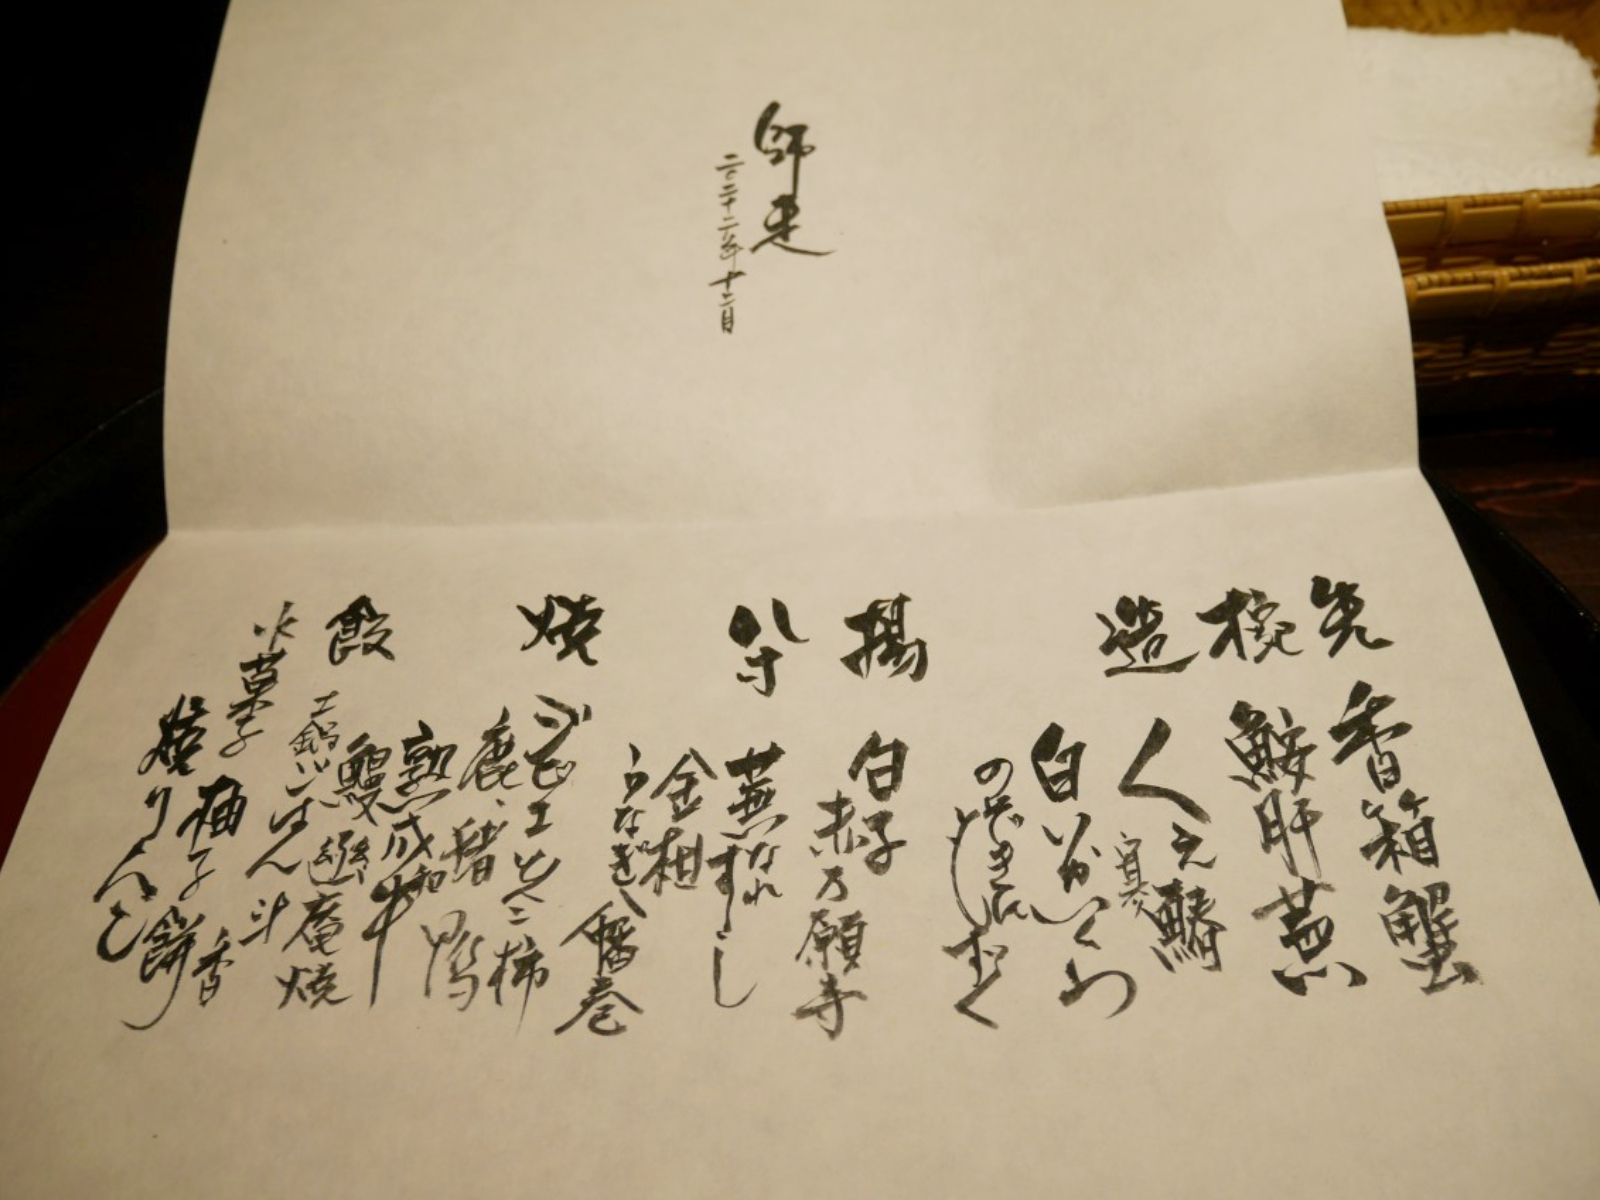 師走
二〇二十二年十二月
先
香箱蟹
椀
鮟肝蒸
造
くえ 寒鰆
白いか いくら
のどぐろ
揚
白子
赤万願寺
八寸
蕪なれずし
金柑
うなぎ八幡巻
焼
ジビエとんこ柿
鹿、猪 鴨
熟成和牛
鰻 幽庵焼
飯
土鍋ごはん 汁 香
水菓子 柚子餅
焼りんご